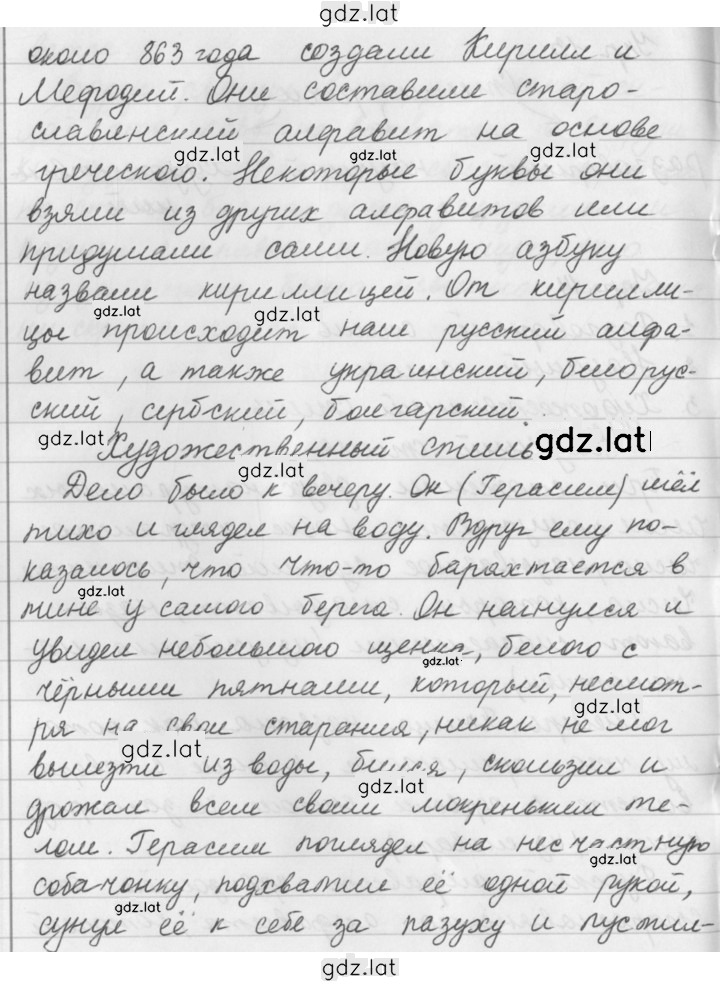 gdz.lat
около 863 года создали Кирилл и
Мефодий. Они составили старо-
славянский алфавит на основе
gdz.lat gdz.lat
греческого. Некоторые буквы они
взяли из других алфавитов или
придумали сами. Новую азбуку
назвали кириллицей. От кирилли-
gdz.lat gdz.lat
цы происходит наш русский алфа-
вит, а также украинский, белорус-
ский, сербский, болгарский.
Художественный стиль
gdz.lat
gdz.lat
Дело было к вечеру. Он (Герасим) шёл
тихо и глядел на воду. Вдруг ему по-
казалось, что что-то барахтается в
gdz.lat
тине у самого берега. Он нагнулся и
увидел небольшого щенка, белого с
gdz.lat
чёрными пятнами, который, несмот-
ря на свои старания, никак не мог
gdz.lat
вылезти из воды, бился, скользил и
gdz.lat
дрожал всем своим мокреньким те-
лом. Герасим поглядел на несчастную
gdz.lat
собачонку, подхватил её одной рукой,
gdz.lat
сунул её к себе за пазуху и пустил-
gdz.lat